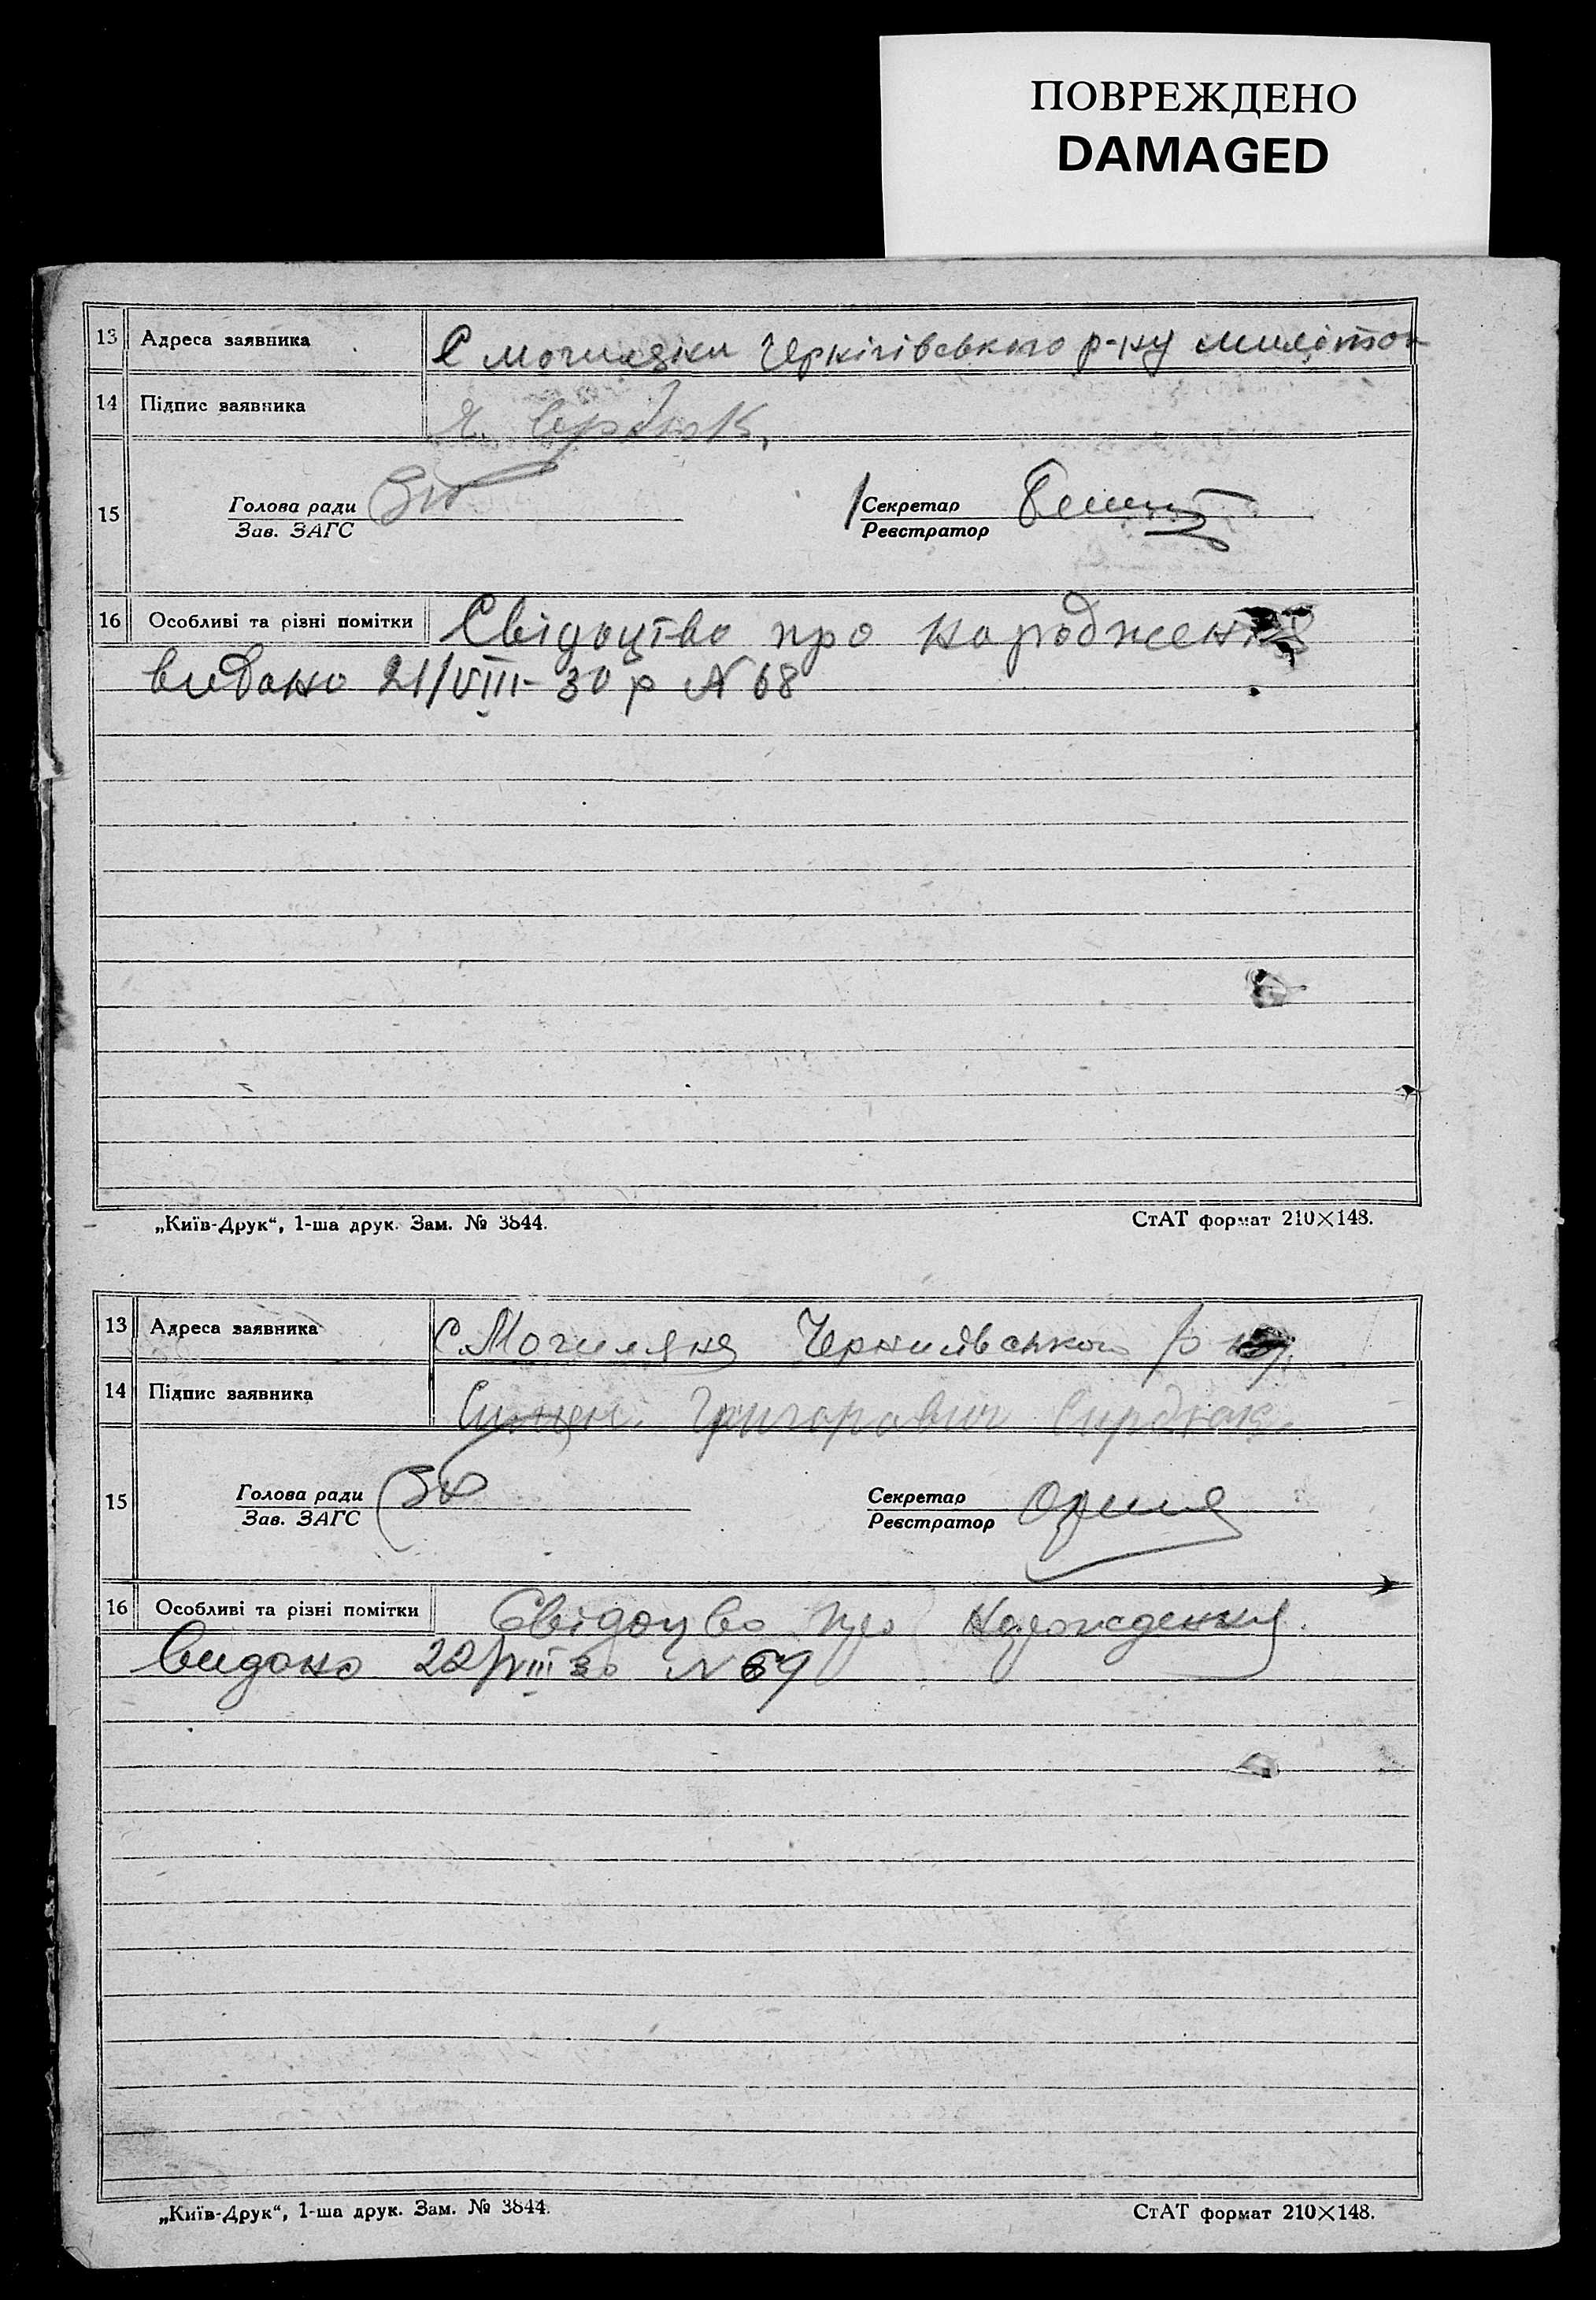 ПОВРЕЖДЕНО
DAMAGED
13 Адреса заявника С Чернігівського р-ну
14 Підпис заявника
15 Голова ради Секретар
Зав. ЗАГС Реєстратор
16 Особливі та різні помітки Свідоцтво про народження
видано 21/VIII-30 р N 68
„Київ-Друк“, 1-ша друк. Зам. № 3844. СтАТ формат 210×148.
13 Адреса заявника С. Могиляни р
14 Підпис заявника Григорович Сирдюк
15 Голова ради Секретар
Зав. ЗАГС Реєстратор
16 Особливі та різні помітки Свідоцво про
видано 22/VIII 30 N 69
„Київ-Друк“, 1-ша друк. Зам. № 3844. СтАТ формат 210×148.